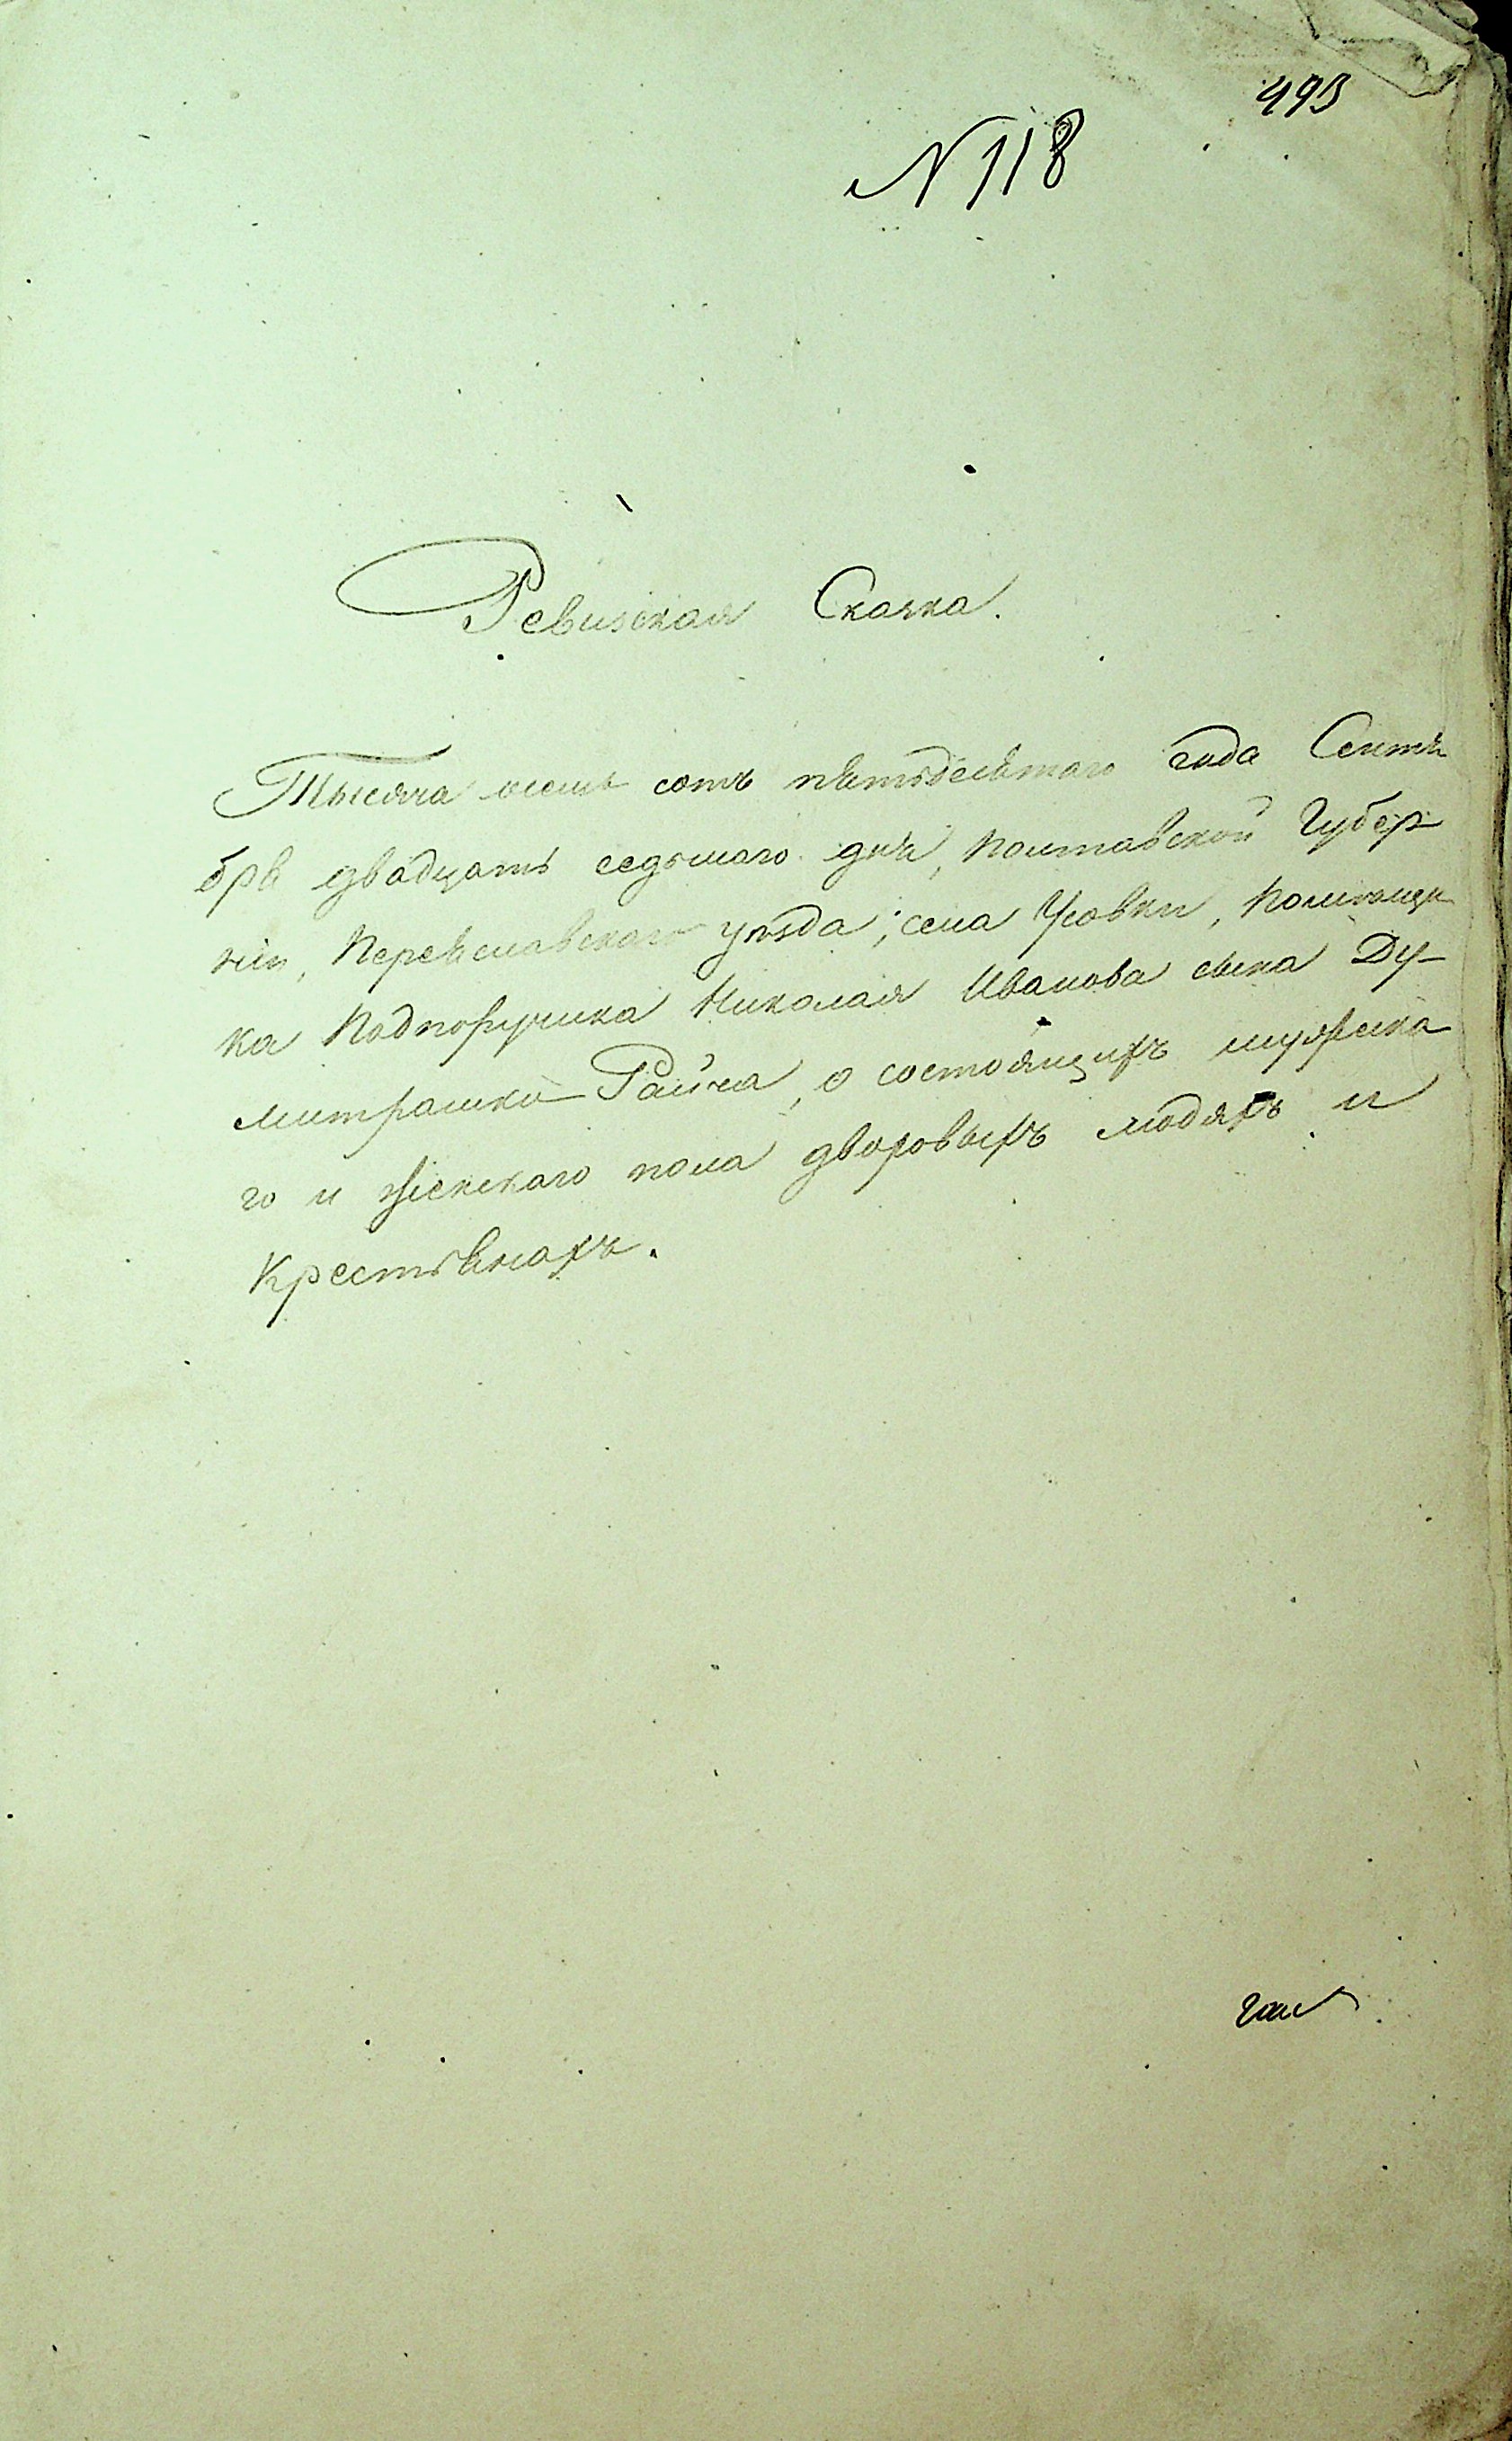 493
N 118
Ревизская Сказка.
Тысяча восемь сотъ пятьдесятаго года Сентя
бря двадцать седьмаго дня, Полтавской Губер-
ніи, Переяславскаго уѣзда; села Усовки, Помѣщи
ка Подпоручика Николая Иванова сына Ду-
митрашко-Райча, о состоящихъ мужеска-
го и женскаго пола дворовыхъ людяхъ и
Крестьянахъ.